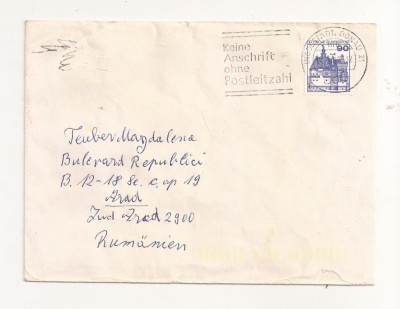 Keine
Anschrift
ohne
Postleitzahl
DONAU 21
90
Teuber Magdalena
Bulevard Republici
B. 12-18 Sc. c, ap 19
Arad
Jud Arad 2900
Rumänien